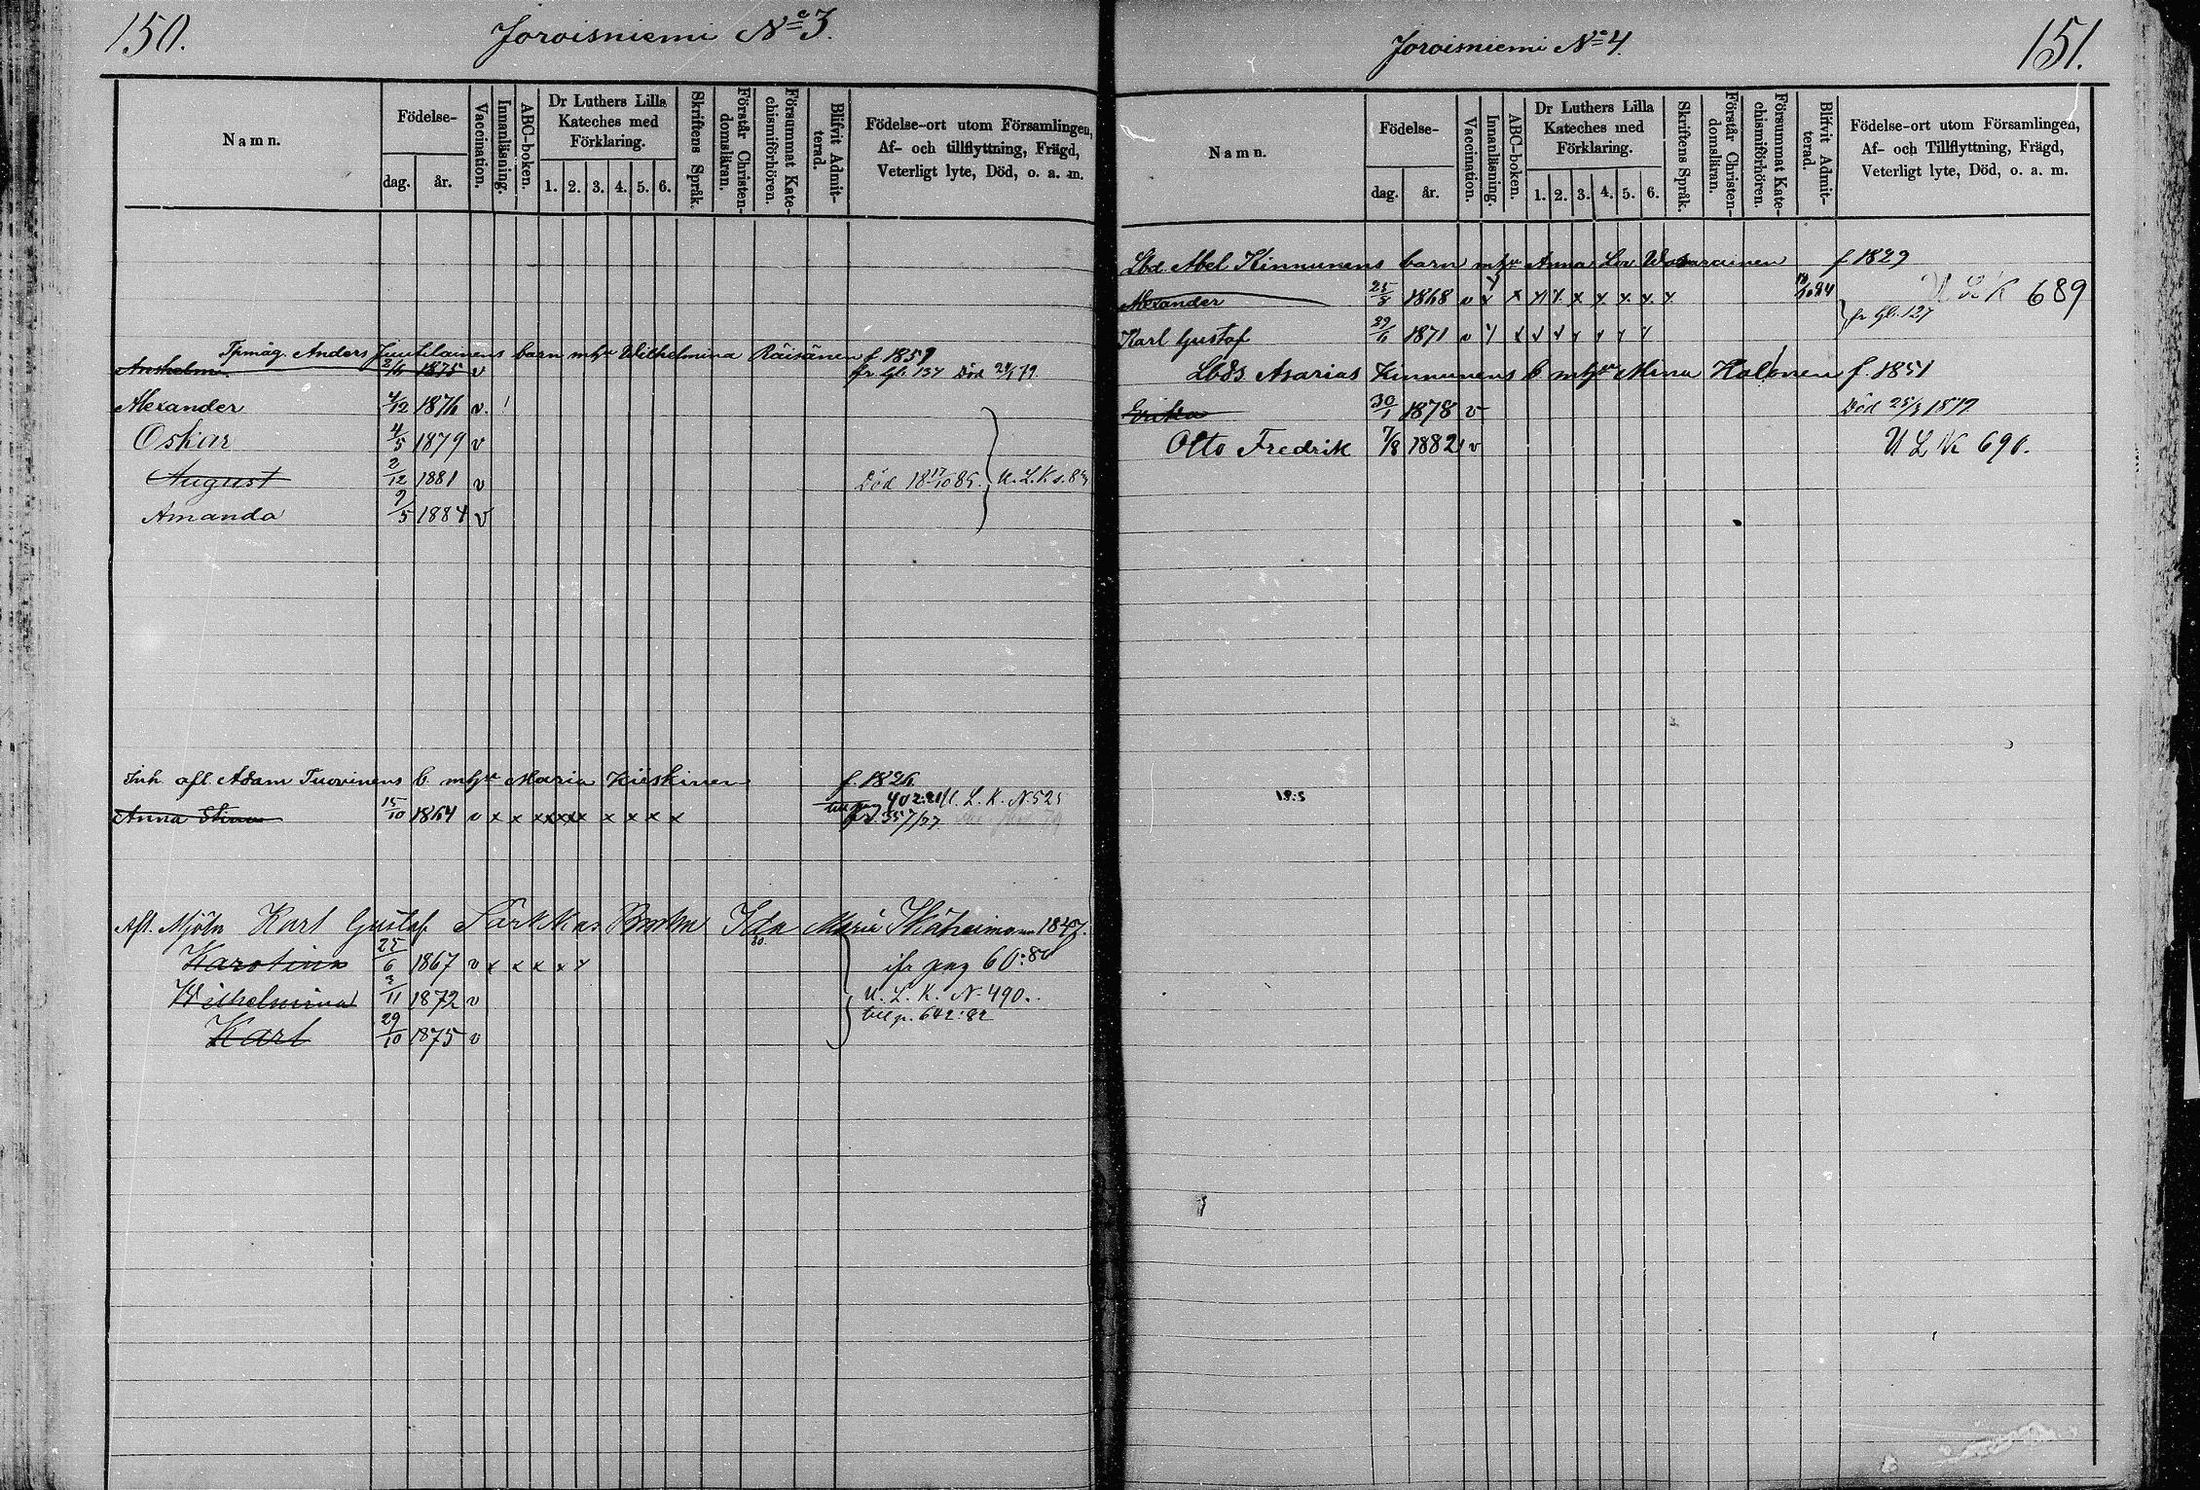 150.
Joroisniemi No 3.
Namn.
Födelse-
dag.
år.
Vaccination.
Innanläsning.
ABC-boken.
Dr Luthers Lilla
Kateches med
Förklaring.
1. 2. 3. 4. 5. 6.
Skriftens Språk.
Förstår Christen-
domsläran.
Försummat Kate-
chismiförhören.
Blifvit Admit-
terad.
Födelse-ort utom Församlingen,
Af- och tillflyttning, Frägd,
Veterligt lyte, Död, o. a. m.
Anders Juutilainens barn m hu Wilhelmina Räisänen f 1859
1875 v fr. Gb. 137 Död
Alexander 4/12 1876 v.
Oskar 4/5 1879 v
August 2/12 1881 v Död 18 17/10 85.
Amanda 9/5 1884 v
Inh. afl. Adam Tuovinens b. m hu Maria Kieskinen f. 1826
Anna Stina 15/10 1864 v x x x x x x x x x x
U. L. K. N. 525
357/77
Afl. Mjöln Karl Gustaf Ida Maria 1847.
Karolina 25/6 1867 v x x x x x pag 60:80
Wilhelmina 3/11 1872 v U. L. K. N. 490.
Karl 29/10 1875 v till p. 642:82
Joroisniemi No 4.
151.
Namn.
Födelse-
dag.
år.
Vaccination.
Innanläsning.
ABC-boken.
Dr Luthers Lilla
Kateches med
Förklaring.
1. 2. 3. 4. 5. 6.
Skriftens Språk.
Förstår Christen-
domsläran.
Försummat Kate-
chismiförhören.
Blifvit Admit-
terad.
Födelse-ort utom Församlingen,
Af- och Tillflyttning, Frägd,
Veterligt lyte, Död, o. a. m.
Lbd. Abel Kinnunens barn m hu Anna Lov. f 1829
Alexander 25/8 1868 v x x x x x x x x x U L K 689
Karl Gustaf 29/6 1871 v x x x x x x x x fr Gb. 127
Lbds Asarias Kinnunens b m hu Mina Halonen f. 1851
Erika 30/1 1878 v Död 25/3 1879
Otto Fredrik 7/8 1882 v U L K 690.